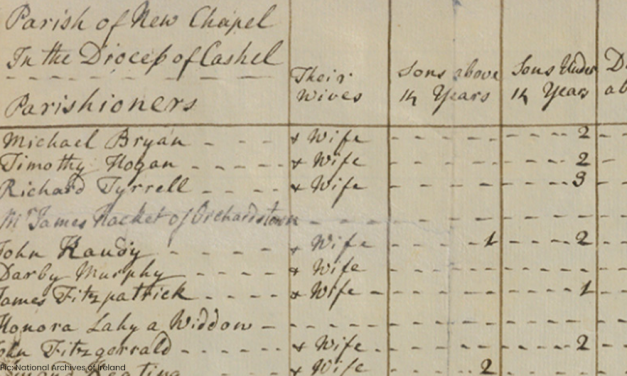 Parish of New Chapel
In the Diocess of Cashel
Parishioners
Their Wives
Sons above 14 Years
Sons Under 14 Years
Michael Bryan - - - - & Wife - - - - - - - - 2
Timothy Hogan - - - - & Wife - - - - - - - - 2
Richard Tyrrell - - - - & Wife - - - - - - - - 3
Mr James Hacket of Orchardstown - - - - - - - -
John - - - - & Wife - - - - 1 - - - - 2
Darby Murphy - - - - & Wife - - - - - - - -
James Fitzpatrick - - - - & Wife - - - - - - - - 1
Honora Lahy a Widdow - - - - - - - -
John Fitzgerrald - - - - & Wife - - - - - - - - 2
Keating - - - - & Wife - - - - 2 - - - -
Pic: National Archives of Ireland